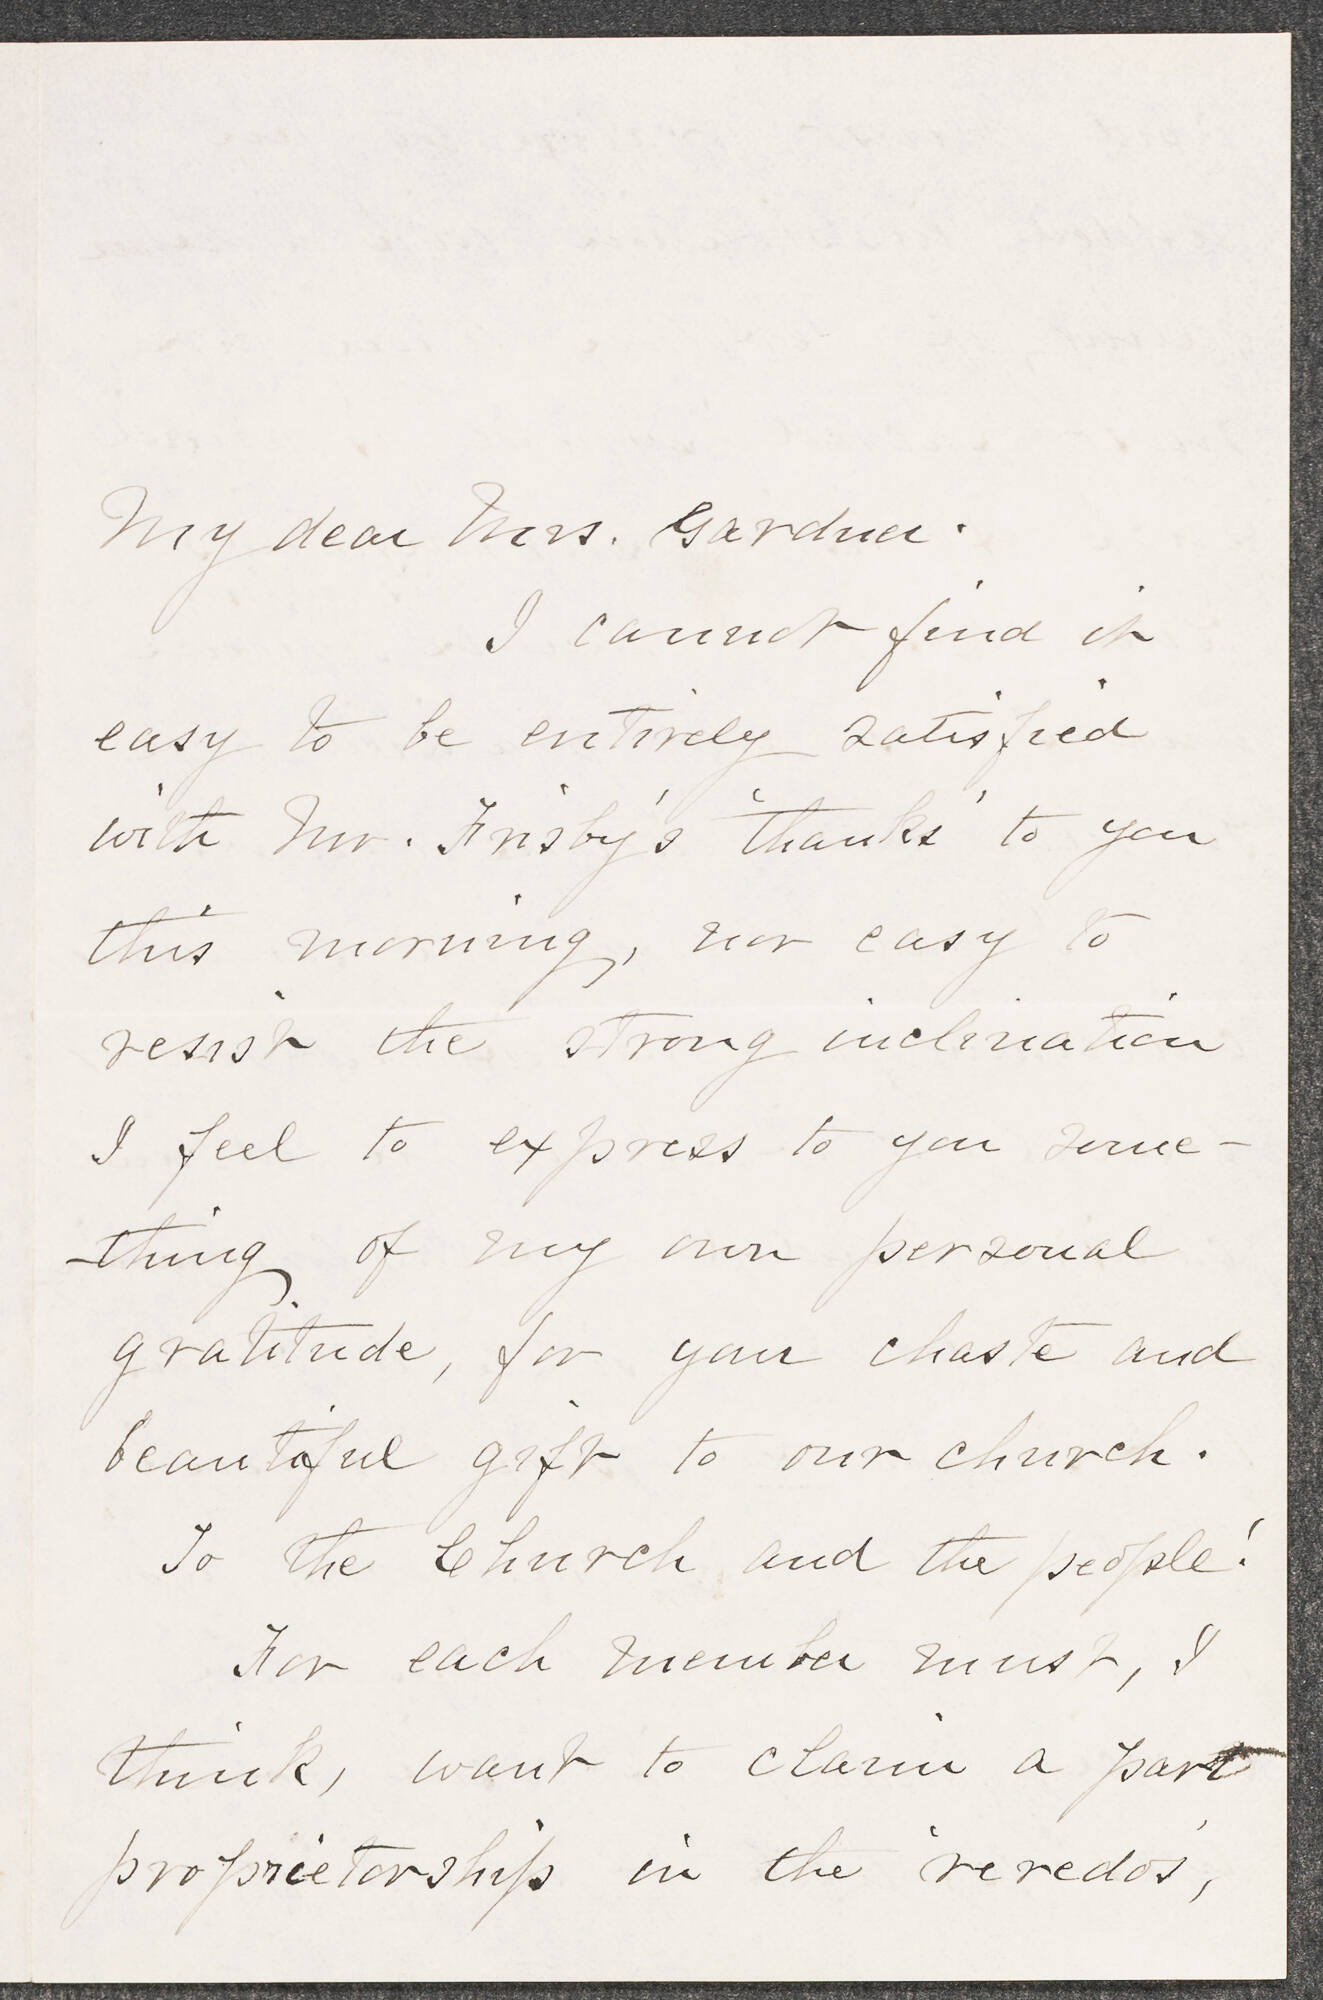 My dear Mrs. Gardner.
I cannot find it
easy to be entirely satisfied
with Mr. Frisby's 'thanks' to you
this morning, nor easy to
resist the strong inclination
I feel to express to you some-
-thing of my own personal
gratitude, for your chaste and
beautiful gift to our church.
To the Church and the people!
For each member must, I
think, want to claim a part
proprietorship in the 'reredos',